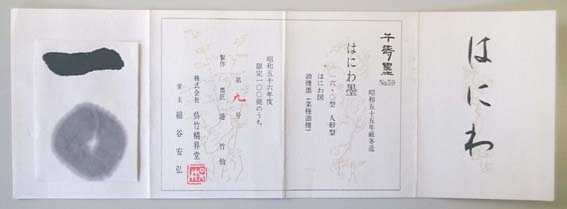 はにわ
千寿墨
No.59
昭和五十五年厳冬造
はにわ墨
一六・〇型 人形型
はにわ図
油煙墨(菜種油煙)
昭和五十六年度
限定一〇〇挺のうち
第 九 号
製作 墨匠 竹仙
株式会社 呉竹精昇堂
業主 綿谷安弘